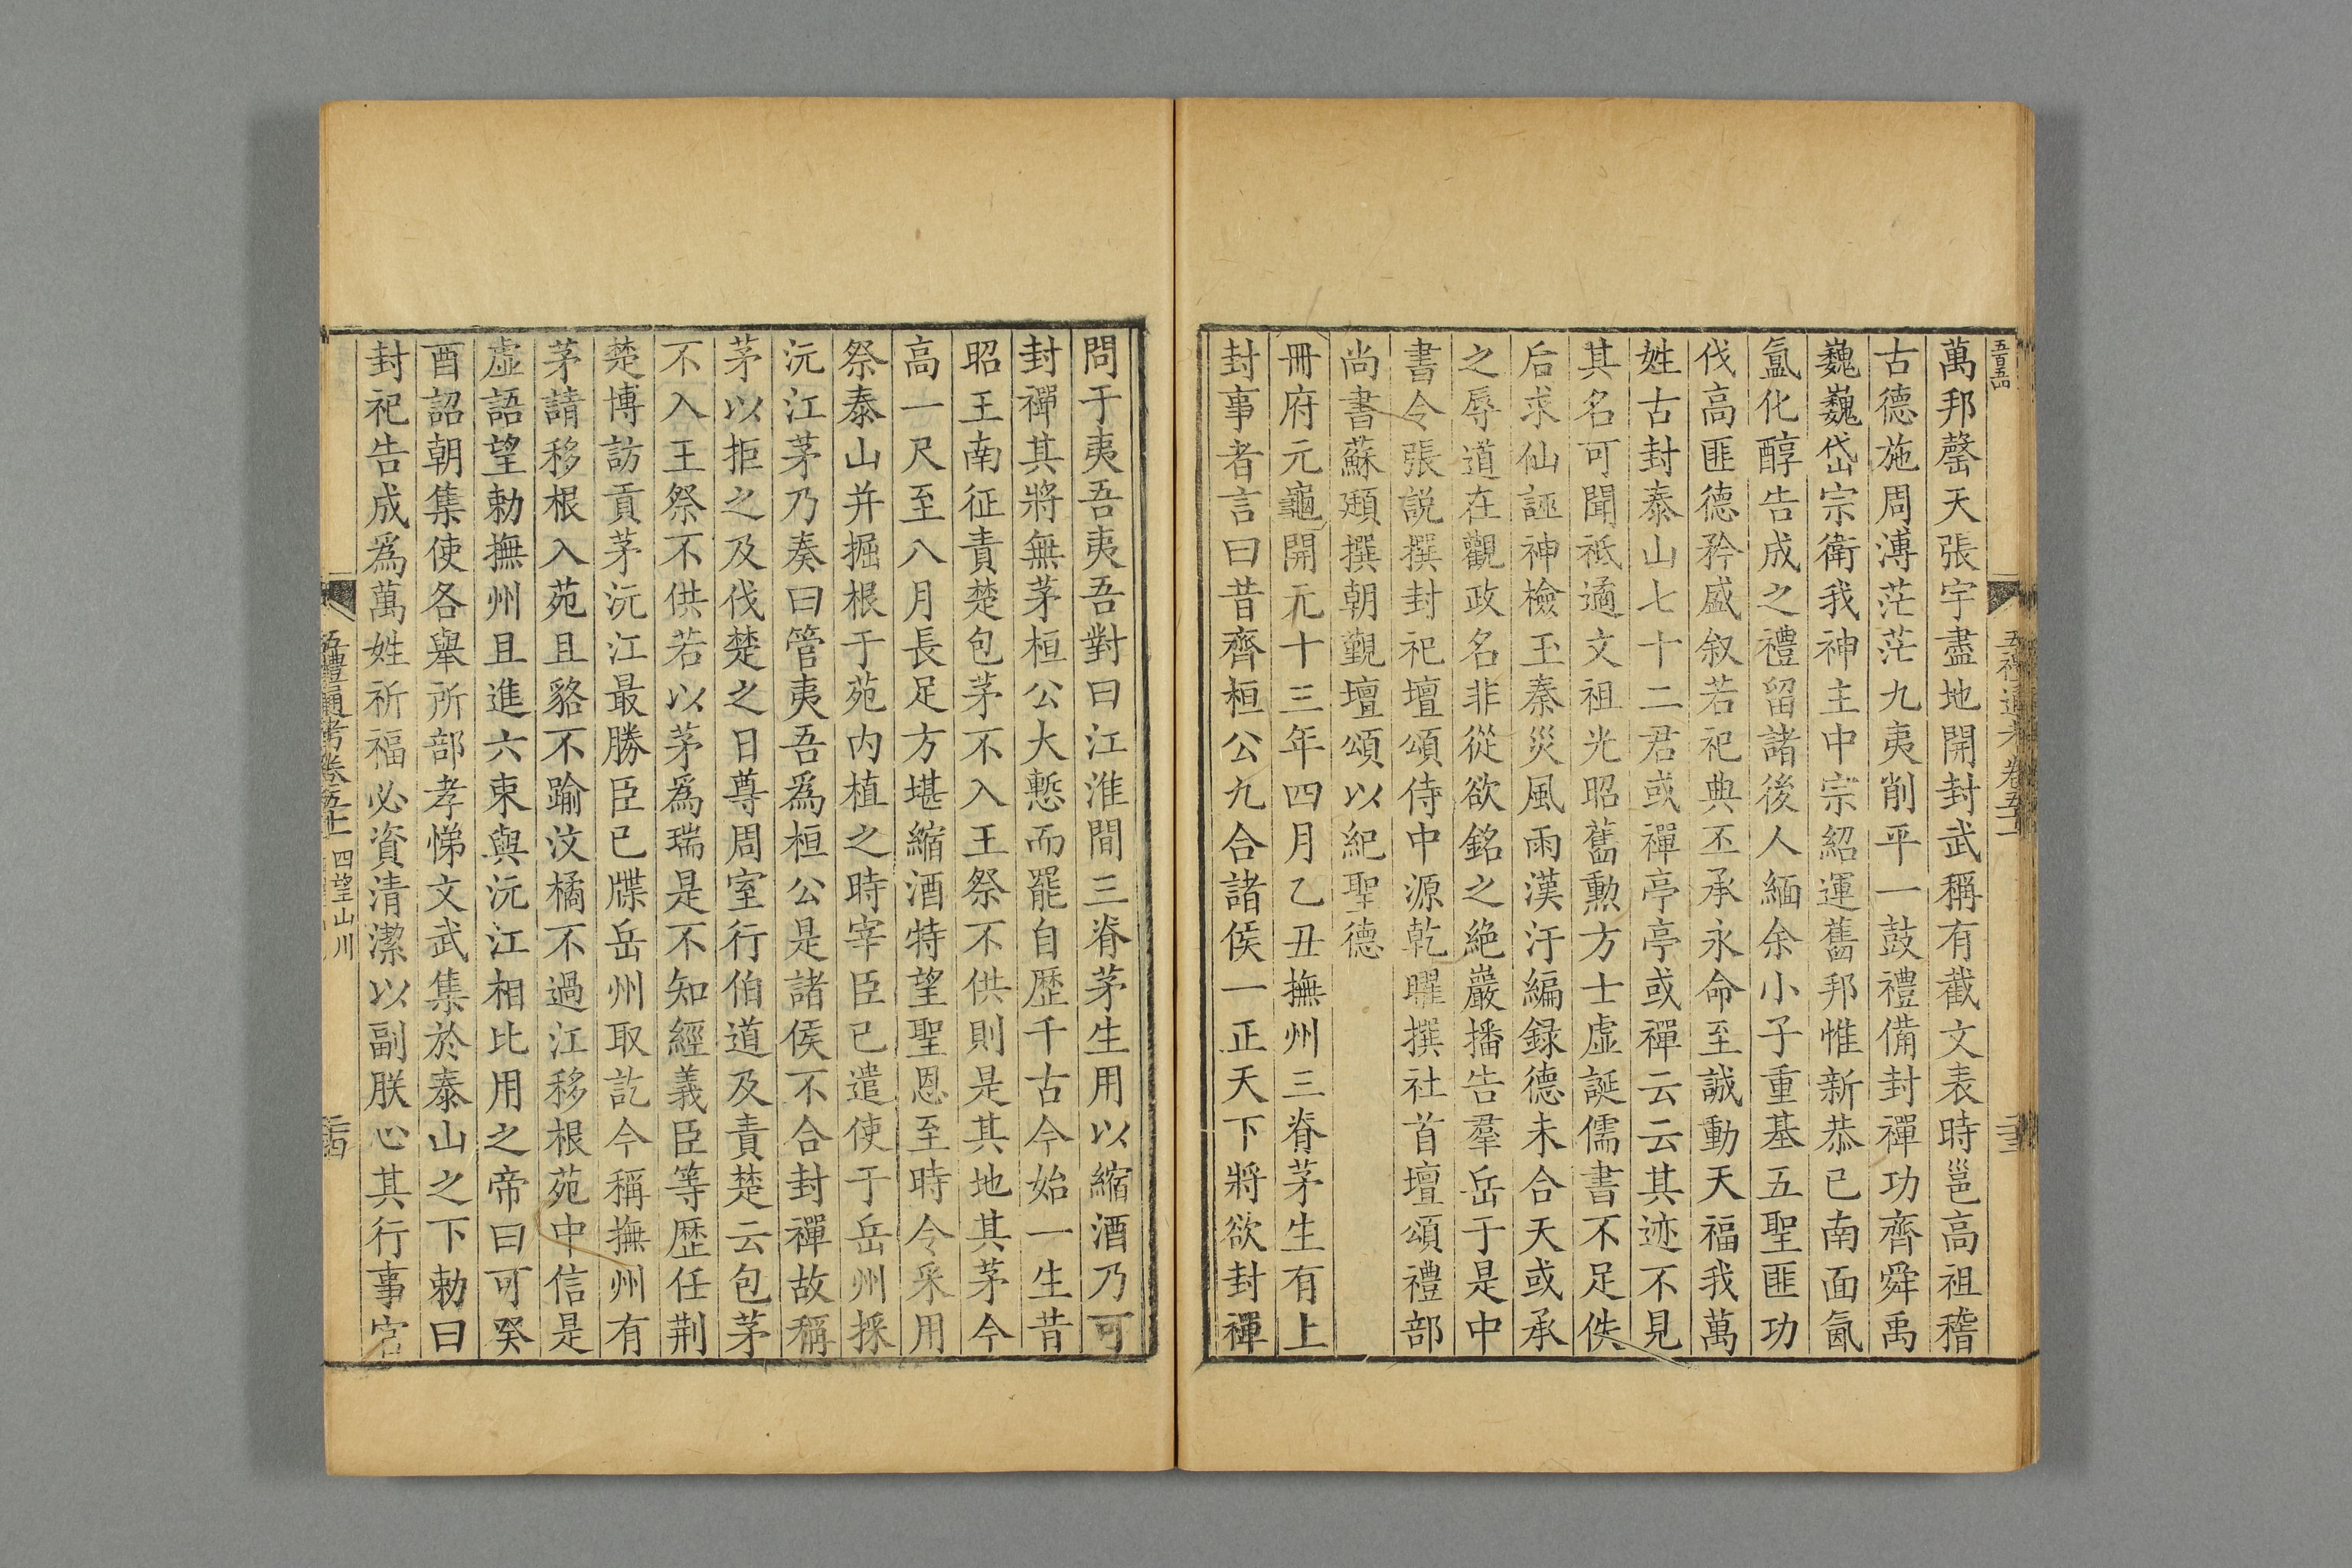 萬邦罄天張宇盡地開封武稱有截文表時邕高祖稽
古德施周溥茫茫九夷削平一鼓禮備封禪功齊舜禹
巍巍岱宗衛我神主中宗紹運舊邦惟新恭己南面氤
氳化醇告成之禮留諸後人緬余小子重基五聖匪功
伐高匪德矜盛叙若祀典丕承永命至誠動天福我萬
姓古封泰山七十二君或禪亭亭或禪云云其迹不見
其名可聞祗遹文祖光昭舊勲方士虛誕儒書不足佚
后求仙誣神檢玉秦災風雨漢汙編録德未合天或承
之辱道在觀政名非從欲銘之絶巖播告羣岳于是中
書令張説撰封祀壇頌侍中源乾曜撰社首壇頌禮部
尚書蘇頲撰朝覲壇頌以紀聖德
冊府元龜開元十三年四月乙丑撫州三脊茅生有上
封事者言曰昔齊桓公九合諸侯一正天下將欲封禪
問于夷吾夷吾對曰江淮間三脊茅生用以縮酒乃可
封禪其將無茅桓公大慙而罷自歷千古今始一生昔
昭王南征責楚包茅不入王祭不供則是其地其茅今
高一尺至八月長足方堪縮酒特望聖恩至時令采用
祭泰山并掘根于苑内植之時宰臣已遣使于岳州採
沅江茅乃奏曰管夷吾爲桓公是諸侯不合封禪故稱
茅以拒之及伐楚之日尊周室行伯道及責楚云包茅
不入王祭不供若以茅爲瑞是不知經義臣等歷任荆
楚博訪貢茅沅江最勝臣已牒岳州取訖今稱撫州有
茅請移根入苑且貉不踰汶橘不過江移根苑中信是
虛語望勅撫州且進六束與沅江相比用之帝曰可癸
酉詔朝集使各舉所部孝悌文武集於泰山之下勅曰
封祀告成爲萬姓祈福必資清潔以副朕心其行事官
五禮通考卷五十一 四望山川